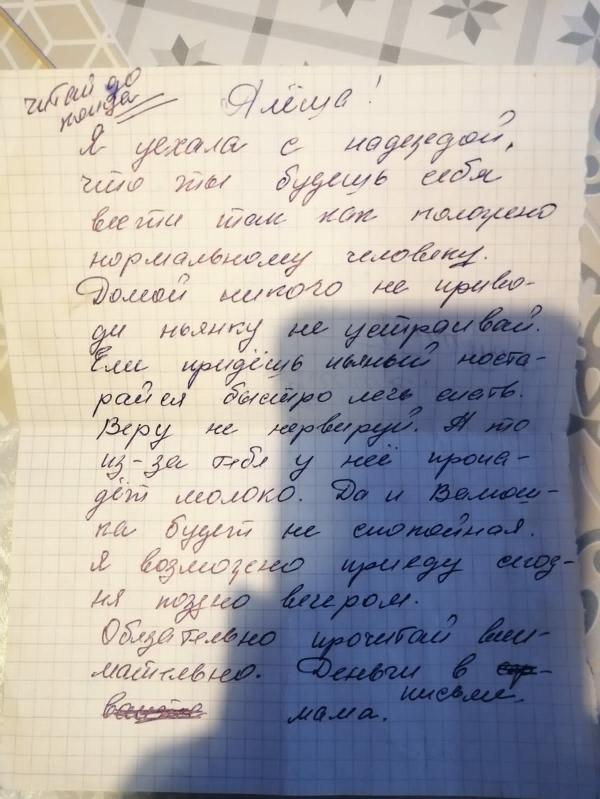 читай до
конца
Алёша!
Я уехала с надеждой,
что ты будешь себя
вести так как положено
нормальному человеку.
Домой никого не приво-
ди пьянку не устраивай.
Если придёшь пьяный поста-
райся быстро лечь спать.
Веру не нервируй. А то
из-за тебя у неё пропа-
дёт молоко. Да и Ваню
ка будет не спокойная.
Я возможно приеду сюд-
ня поздно вечером.
Обязательно прочитай вни-
мательно. Деньги в
письме.
мама.